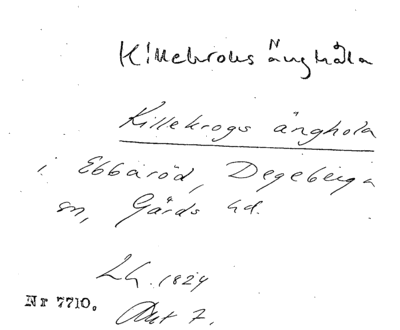 Killekroks änghåla
Killekrogs änghola
i Ebbaröd, Degeberga
sn, Gärds hd.
Lh. 1824
Nr 7710. Akt 7.